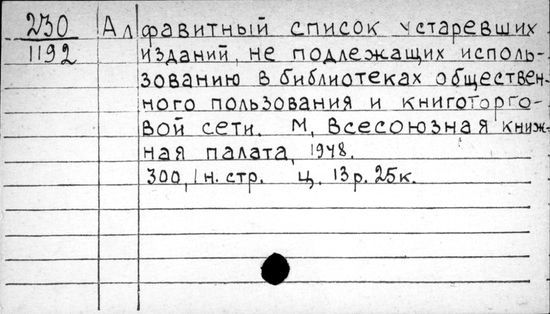 230 Алфавитный список устаревших
1192 изданий, не подлежащих исполь-
зованию в библиотеках обществен-
ного пользования и книготорго-
вой сети. М, Всесоюзная книж-
ная палата, 1948.
300, 1 н. стр. ц. 13 р. 25 к.